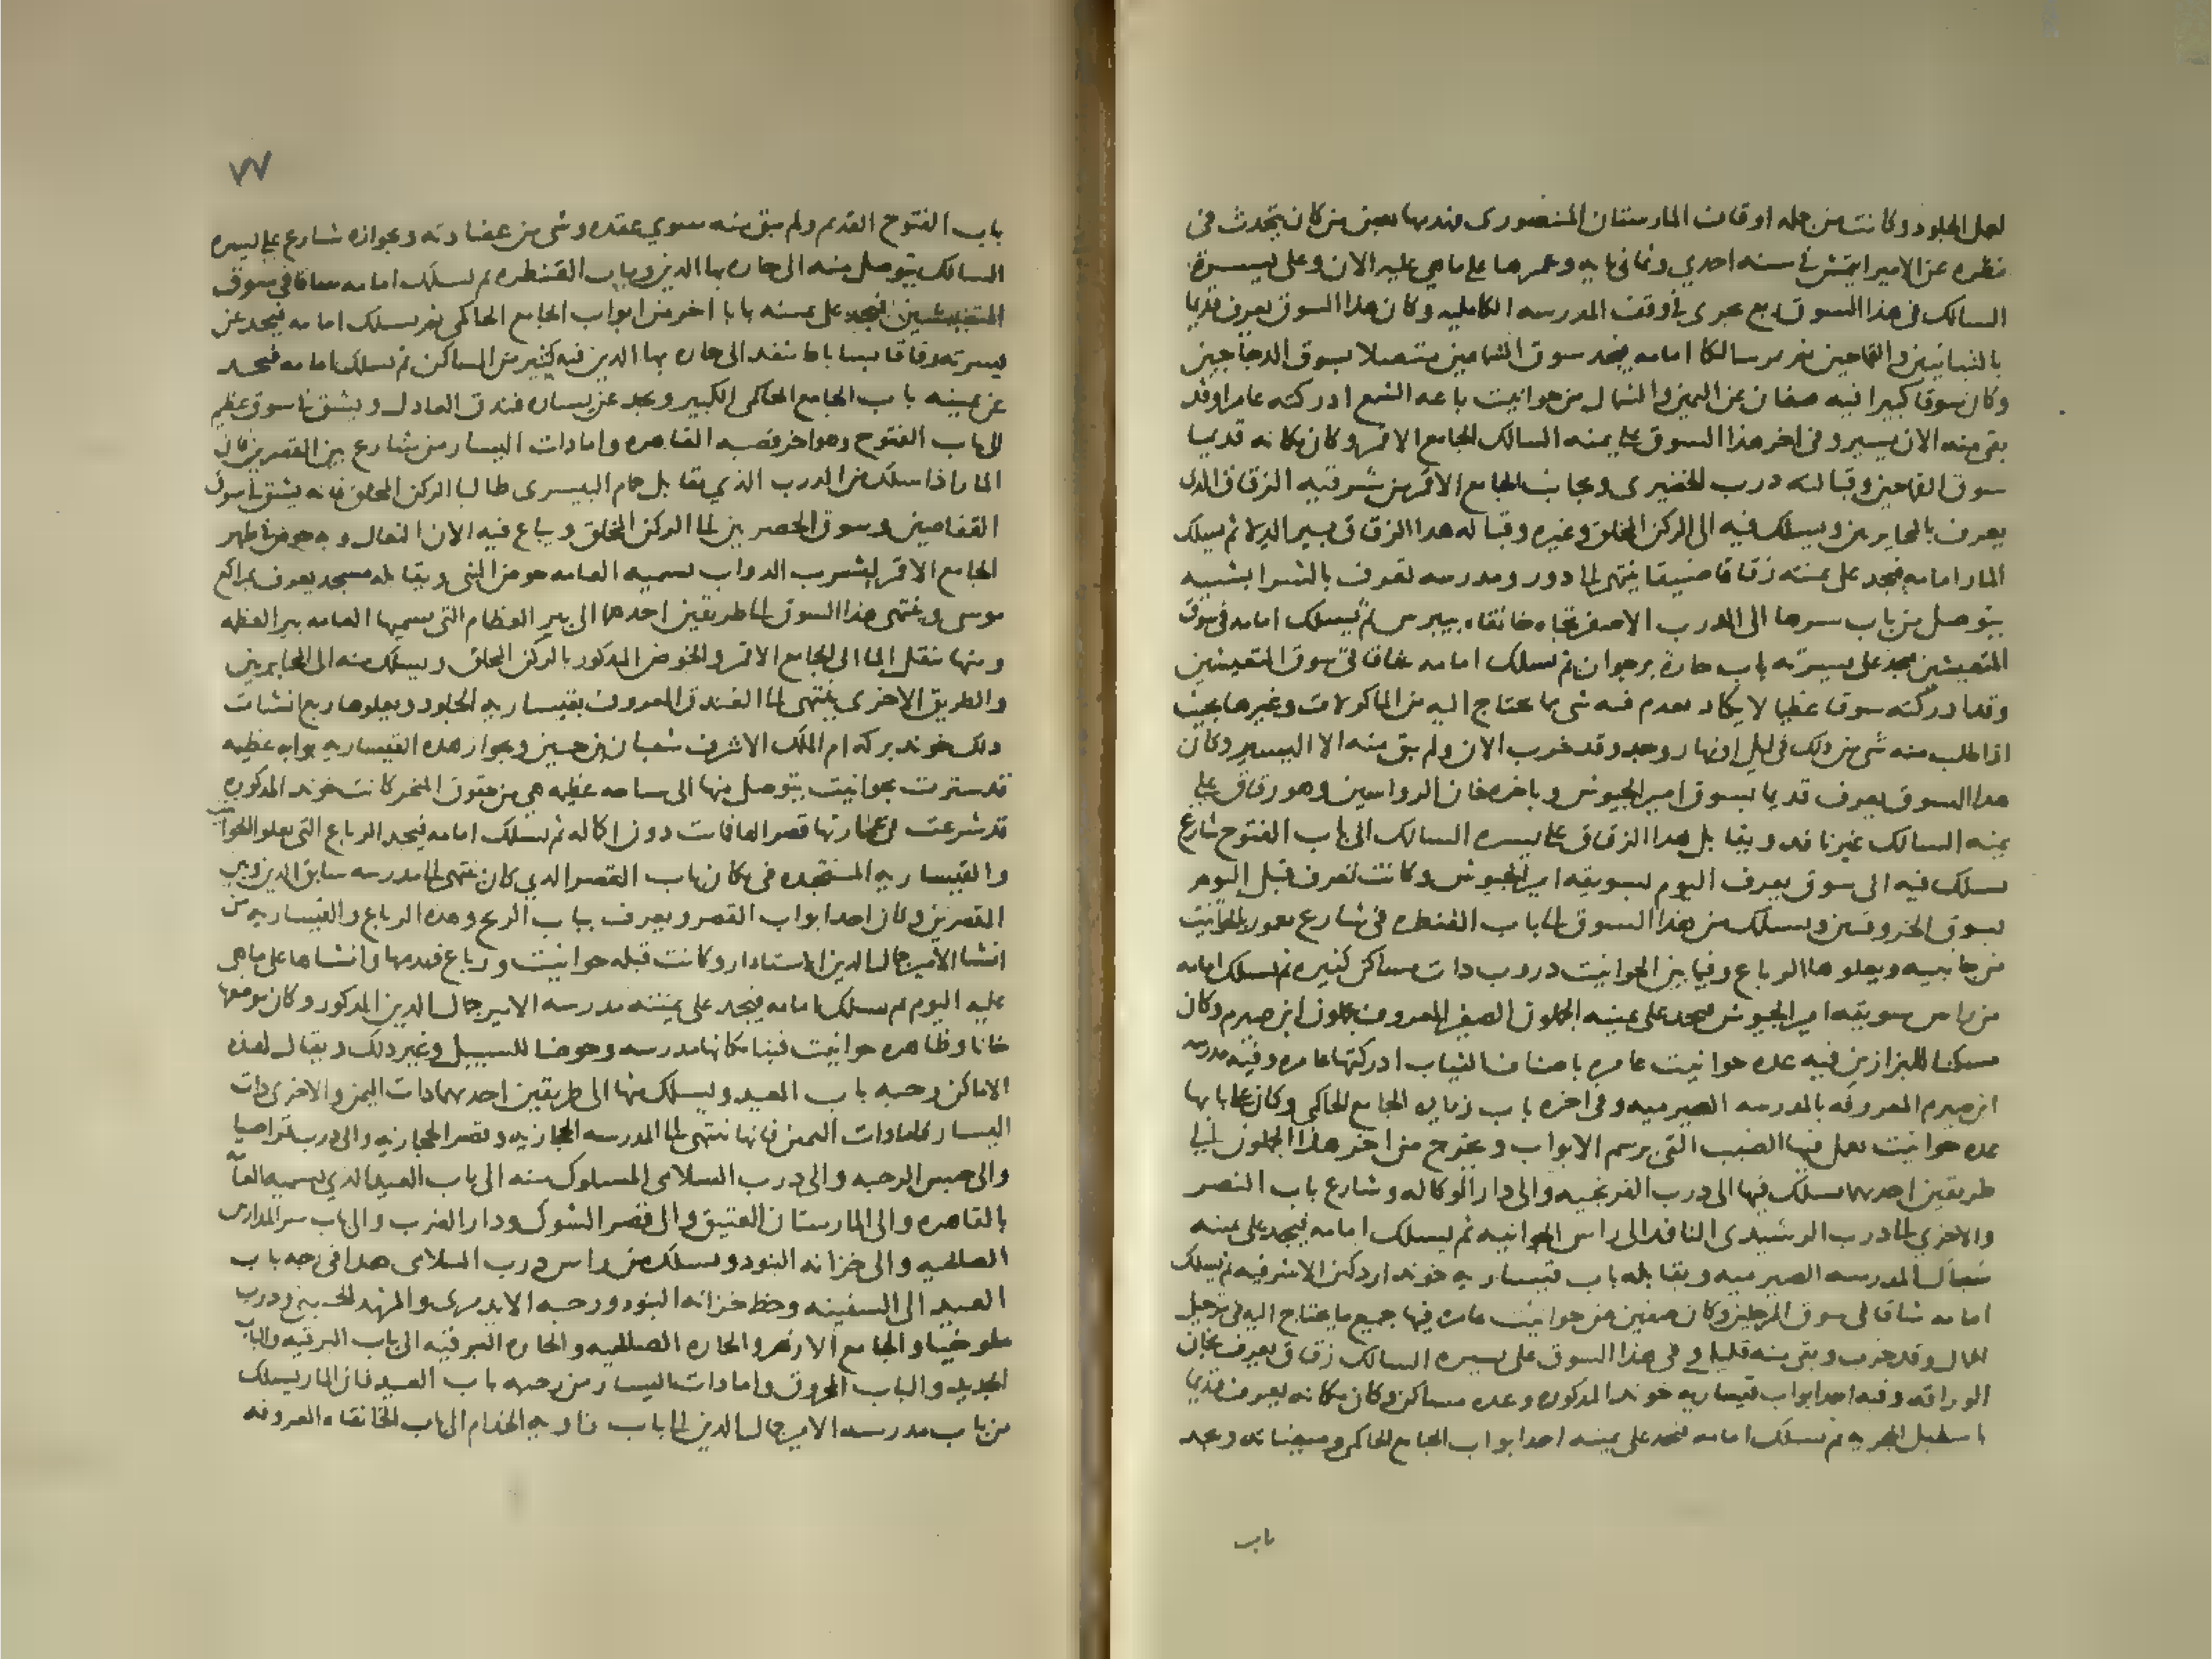 لعمل الجلود وكانت من جمله اوقاف المارستان المنصورى فهدمها بعض من كان يتحدث فى
نظره عن الامير ايتمش فى سنه احدي وثمانى مايه وعمرها على ماهي عليه الان وعلى يسرة
السالك فى هذا السوق ربع يجرى فى وقف المدرسه الكامليه وكان هذا السوق يعرف قديما
بالتبانين والقماحين ثم يمر سالكا امامه فيجد سوق الشماعين متصلا بسوق الدجاجين
وكان سوقا كبيرا فيه صفان عن اليمين والشمال من حوانيت باعه الشمع ادركته عامرا وقد
بقى منه الان يسير وفى اخر هذا السوق على يمنه السالك الجامع الاقمر وكان مكانه قديما
سوق القماحين وقبالته درب الخضيرى وبجانب الجامع الاقمر من شرقيه الزقاق الذى
يعرف بالمحايريين ويسلك فيه الى الركن المخلق وغيره وقباله هذا الزقاق بير الدلا ثم يسلك
المار امامه فيجد على يمنته زقاقا ضيقا ينتهى الى دور ومدرسه تعرف بالشرابشيه
يتوصل من باب سرها الى الدرب الاصفر تجاه خانقاه بيبرس ثم يسلك امامه فى سوق
المتعيشين فيجد على يسرته باب حارة برجوان ثم يسلك امامه شاقا فى سوق المتعيشين
وقد ادركته سوقا عظيما لا يكاد يعدم فيه شى مما يحتاج اليه من الماكولات وغيرها بحيث
اذا طلب منه شى من ذلك فى ليل او نهار وجد وقد خرب الان ولم يبق منه الا اليسير وكان
هذا السوق يعرف قديما بسوق امير الجيوش وباخره خان الرواسين وهو زقاق على
يمنه السالك غير نافد ويقابل هذا الزقاق على يسره السالك الى باب الفتوح شارع
يسلك فيه الى سوق يعرف اليوم بسويقه امير الجيوش وكانت تعرف قبل اليوم
بسوق الخروقيين ويسلك من هذا السوق الى باب القنطره فى شارع معمور بالحوانيت
من جانبيه ويعلوها الرباع وفيما بين الحوانيت دروب دات مساكن كثيره ثم يسلك امامه
من راس سويقه امير الجيوش فيجد على يمينه الجملون الصغير المعروف بجملون ابن صيرم وكان
مسكنا للبزازين فيه عده حوانيت عامره باصناف الثياب ادركتها عامره وفيه مدرسه
ابن صيرم المعروفه بالمدرسه الصيرميه وفى اخره باب زياده الجامع الحاكمى وكان على بابها
عده حوانيت تعمل فيها الضبب التى برسم الابواب ويخرج من اخر هذا الجملون الى
طريقين احدهما يسلك فيها الى درب الفرنجيه والى دار الوكاله وشارع باب النصر
والاخرى الى درب الرشيدى النافد الى راس الجوانيه ثم يسلك امامه فيجد على يمنه
شباك المدرسه الصيرميه ويقابله باب قيساريه خوند اردكين الاشرفيه ثم يسلك
امامه شاقا فى سوق المرحلين وكان صفين من حوانيت عامره فيها جميع ما يحتاج اليه فى ترحيل
الجمال وقد خرب وبقى منه قليل وفى هذا السوق على يسره السالك زقاق يعرف بحان
الوراقه وفيه احد ابواب قيساريه خوند المدكوره وعده مساكن وكان مكانه يعرف قديما
باسطبل الحجريه ثم يسلك امامه فيجد على يمينه احد ابواب الجامع الحاكمى وميضاته ويجد
باب
٧٧
باب الفتوح القديم ولم يبق منه سوي عقده وشى من عضادته وبجوازه شارع على يسره
السالك يتوصل منه الى حاره بها الدين وباب القنطره ثم يسلك امامه شاقا فى سوق
المتعيشين فيجد على يمنه بابا اخر من ابواب الجامع الحاكمى ثم يسلك امامه فيجد عن
يسرته زقاقا بساباط ينفد الى حاره بها الدين فيه كثير من المساكن ثم يسلك امامه فيجد
عن يمينه باب الجامع الحاكمى الكبير ويجد عن يساره فندق العادل ويشق فى سوق عظيم
الى باب الفتوح وهو اخر قصبه القاهره واما دات اليسار من شارع بين القصرين فان
المار اذا سلك من الدرب الذي يقابل حمام البيسرى طالبا الركن المخلق فانه يشق فى سوق
القفاصين وسوق الحصريين الى الركن المخلق ويباع فيه الان النعال وبه حوض فى ظهر
الجامع الاقمر لشرب الدواب تسميه العامه حوض النبى ويقابله مسجد يعرف بمراكع
موسى وينتهى هذا السوق الى طريقين احدهما الى بير العظام التى يسميها العامه بير العظمه
ومنها ينقل الما الى الجامع الاقمر والحوض المدكور بالركن المخلق ويسلك منه الى المحايريين
والطريق الاخرى ينتهى الى الفندق المعروف بقيساريه الجلود ويعلوها ربع انشات
دلك خوند بركه ام الملك الاشرف شعبان بن حسين وبجوار هده القيساريه بوابه عظيمه
قد سترت بحوانيت يتوصل منها الى ساحه عظيمه هى من حقوق المنحر كانت خوند المدكوره
قد شرعت فى عمارتها قصرا لها فماتت دون اكماله ثم يسلك امامه فيجد الرباع التى يعلو الحوانيت
والقيساريه المستجده فى مكان باب القصر الدي كان ينتهى الى مدرسه سابق الدين وبين
القصرين وكان احد ابواب القصر ويعرف بباب الريح وهده الرباع والقيساريه من
انشا الامير جمال الدين الاستادار وكانت قبله حوانيت ورباع فهدمها وانشاها على ماهى
عليه اليوم ثم يسلك امامه فيجد على يمينه مدرسه الامير جمال الدين المدكور وكان موضعها
خانا وظاهره حوانيت فبنا مكانها مدرسه وحوضا للسبيل وغير دلك ويقال لهذه
الاماكن رحبه باب العيد ويسلك منها الى طريقين احدهما دات اليمين والاخرى دات
اليسار فاما دات اليمين فانها تنتهى الى المدرسه الحجازيه وقصر الحجازيه والى درب قراصيا
والى حبس الرحبه والى درب السلامى المسلوك منه الى باب العيد الدي تسميه العامه
بالقاهره والى المارستان العتيق والى قصر الشوك ودار الضرب والى باب سر المدارس
الصالحيه والى خزانه البنود ويسلك من راس درب السلامى هدا فى رحبه باب
العيد الى السفينه وخط خزانه البنود ورحبه الايدمرى والمشهد الحسينى ودرب
ملوخيا والجامع الازهر والحاره الصالحيه والحاره البرقيه الى باب البرقيه والباب
الجديد والباب المحروق واما دات اليسار من رحبه باب العيد فان المار يسلك
من باب مدرسه الامير جمال الدين الى باب زاويه الخدام الى باب الخانقاه المعروفه